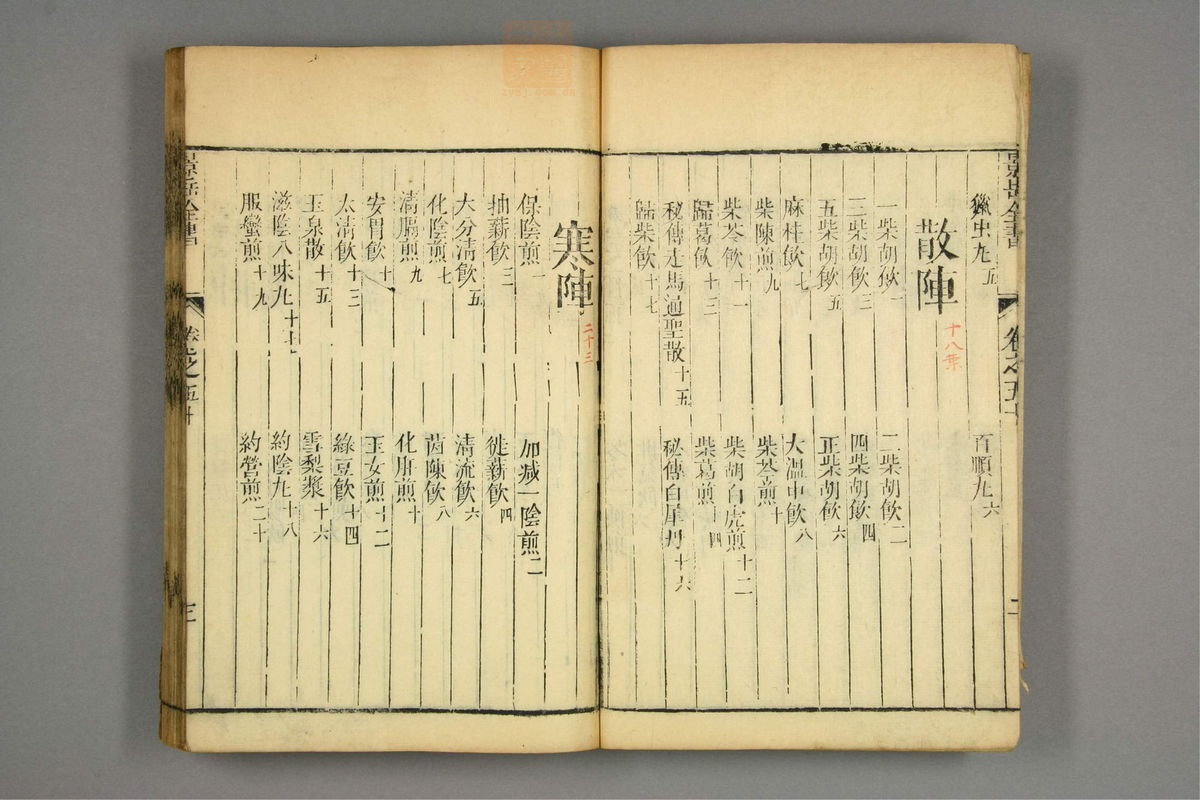 景岳全書 卷之五十 二
獵虫丸五 百順丸六
散陣
十八葉
一柴胡飲一 二柴胡飲二
三柴胡飲三 四柴胡飲四
五柴胡飲五 正柴胡飲六
麻桂飲七 大温中飲八
柴陳煎九 柴芩煎十
柴苓飲十一 柴胡白虎煎十二
歸葛飲十三 柴葛煎十四
秘傳走馬通聖散十五 秘傳白犀丹十六
歸柴飲十七
寒陣
二十三
保陰煎一 加减一陰煎二
抽薪飲三 徙薪飲四
大分清飲五 清流飲六
化陰煎七 茵陳飲八
清膈煎九 化肝煎十
安胃飲十一 玉女煎十二
太清飲十三 綠豆飲十四
玉泉散十五 雪梨漿十六
滋陰八味丸十七 約陰丸十八
服蠻煎十九 約營煎二十
景岳全書 卷之五十 三